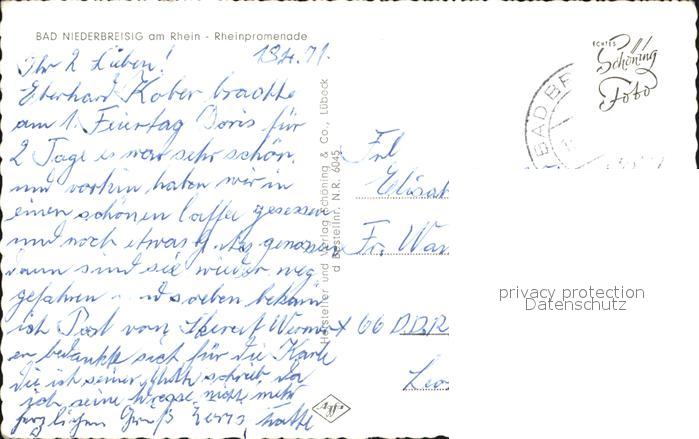 BAD NIEDERBREISIG am Rhein - Rheinpromenade
13.4.71.
Ihr 2 Lieben!
Eberhard Kober brachte
am 1. Feiertag Doris für
2 Tage es war sehr schön,
und vorhin haben wir in
einen schönen Caffee gesessen
und noch etwas genossen
dann sind sie wieder weg
gefahren soeben bekam
ich Post von Werner
er bedankte sich für die Karte
die ich seiner schrieb, da
ich seine nicht mehr
herzlichen Gruß
Hersteller und Verlag Schöning & Co., Lübeck
Bestellnr. N.R. 6045
ECHTES
Schöning
Foto
BAD BR
Frl
Elisab
Fr. War
X 66 DDR
agfa
privacy protection
Datenschutz